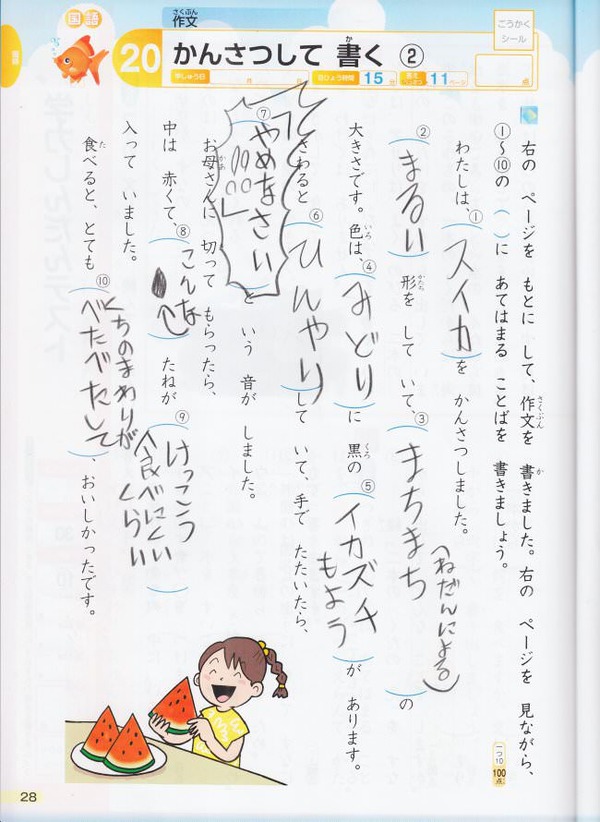 国語
さくぶん
作文
20 かんさつして 書く ②
か
ごうかく
シール
学しゅう日 月 日
目ひょう時間 15分
11ページ
点
右の ページを もとに して、作文を 書きました。右の ページを 見ながら、
さくぶん
か
①～⑩の( )に あてはまる ことばを 書きましょう。
一つ10
100点
わたしは、①(スイカ)を かんさつしました。
②(まるい)形を して いて、③(まちまち(ねだんによる))の
かたち
大きさです。色は、④(みどり)に 黒の ⑤(イカズチもよう)が あります。
いろ
くろ
さわると ⑥(ひんやり)して いて、手で たたいたら、
⑦(「やめなさい!!!!」)と いう 音が しました。
お母さんに 切って もらったら、
かあ
中は 赤くて、⑧(こんな)たねが ⑨(けっこう食べにくいくらい)
入って いました。
食べると、とても ⑩(くちのまわりがべたべたして)、おいしかったです。
た
28